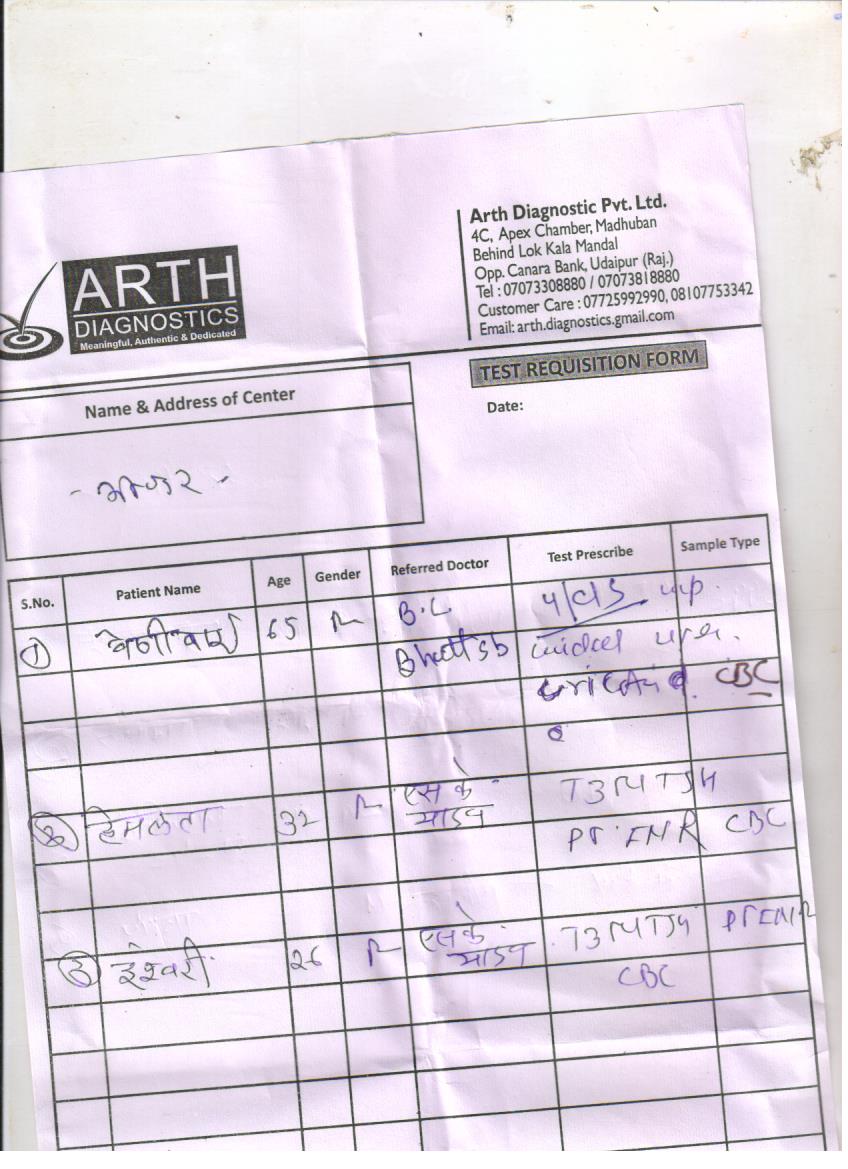 Arth Diagnostic Pvt. Ltd.
4C, Apex Chamber, Madhuban
Behind Lok Kala Mandal
Opp. Canara Bank, Udaipur (Raj.)
Tel : 07073308880 / 07073818880
Customer Care : 07725992990, 08107753342
Email: arth.diagnostics.gmail.com
ARTH
DIAGNOSTICS
Meaningful, Authentic & Dedicated
TEST REQUISITION FORM
Name & Address of Center
Date:
S.No. Patient Name Age Gender Referred Doctor Test Prescribe Sample Type
1 65 B.C
Bhatt sb
CBC
2 हेमलता 32 एस के T3T4TSH
यादव PT INR CBC
3 ईश्वरी 26 एस के T3T4TSH PTINR
यादव CBC